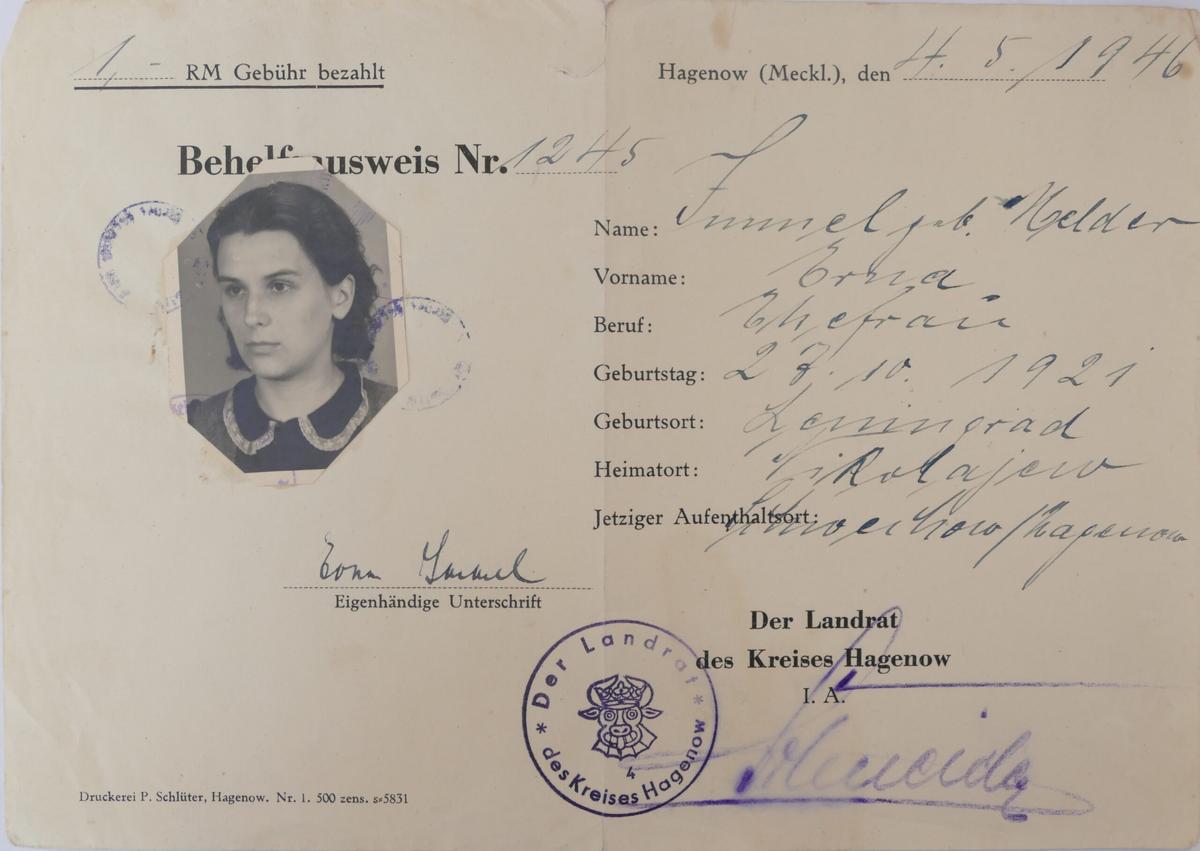 1,- RM Gebühr bezahlt
Behelfsausweis Nr. 1245
Eigenhändige Unterschrift
Druckerei P. Schlüter, Hagenow. Nr. 1. 500 zens. s=5831
Hagenow (Meckl.), den 4. 5. 1946
Name: Immel geb. Melder
Vorname: Erna
Beruf: Ehefrau
Geburtstag: 27. 10. 1921
Geburtsort: Leningrad
Heimatort: Nikolajew
Jetziger Aufenthaltsort: /Hagenow
Der Landrat
des Kreises Hagenow
I. A.
* Der Landrat *
des Kreises Hagenow
4